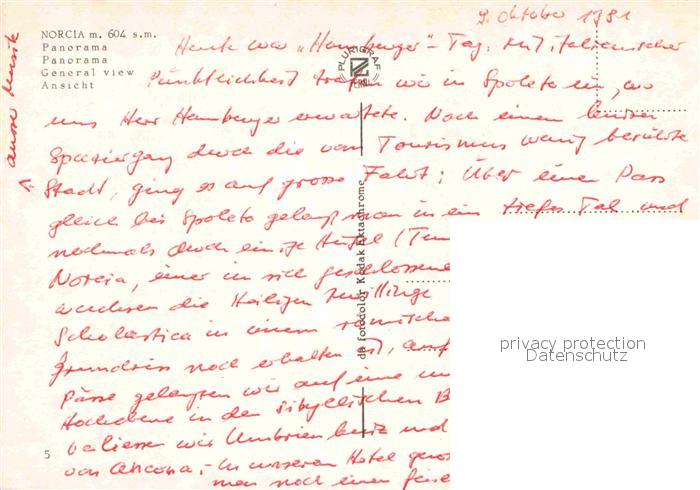 NORCIA m. 604 s.m.
Panorama
Panorama
General view
Ansicht
PLURIGRAF
TERNI
9. Oktober 1981
Heute war „Hamburger"-Tag. Mit italienischer
Pünktlichkeit trafen wir in Spoleto ein, wo
uns Herr Hamburger erwartete. Nach einem kurzen
Spaziergang durch die vom Tourismus wenig berührte
Stadt, ging es auf grosse Fahrt: Über einen Pass
gleich bei Spoleto gelangt man in ein tiefes Tal und
nochmals durch einige
Norcia, einer in sich geschlossene
wuchsen die Heiligen Zwillinge
Scholastica in einem römische
Grundriss noch erhalten ist, auf
Pässe gelangten wir auf eine
Hochebene in den sibyllischen B
verliessen wir Umbrien kurz und
von Ancona.- In unserem Hotel
man noch einen
ausser Musik
da fotocolor Kodak Ektachrome
5
privacy protection
Datenschutz